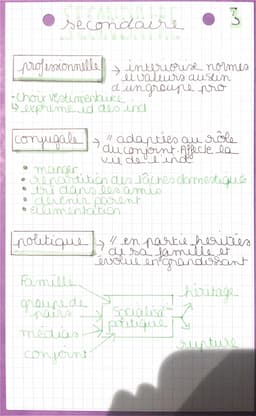 secondaire
3
professionnelle → intériorise normes
et valeurs au sein
d'un groupe pro
- Choix vestimentaire
↳ exprime id des ind
conjugale → " adaptées au rôle
du conjoint. Affecte la
vie de l'ind
• manger
• répartition des tâches domestiques
• tri dans les amis
• devenir parent
• alimentation
politique → " en partie héritées
de sa famille et
évolue en grandissant
Famille
groupe de
pairs
médias
conjoint
Socialisat°
politique
héritage
rupture